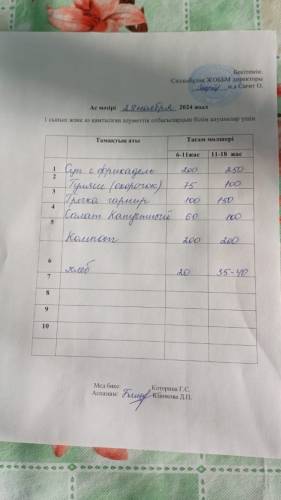 Бекітемін:
ЖОББМ директоры
м.а Сагит О.
Ас мәзірі 28 ноября 2024 жыл
1 сынып және аз қамтылған әлеуметтік отбасыларының білім алушылар үшін
Тамақтың аты Тағам мөлшері
6-11жас 11-18 жас
1 Суп с фрикадель 200 250
2 Гуляш (окорочок) 75 100
3 Гречка гарнир 100 150
4 Салат Капустный 60 100
5 Компот 200 200
6 хлеб 20 35-40
7
8
9
10
Мед бике: Которева Г.С.
Аспазшы: Климова Л.П.